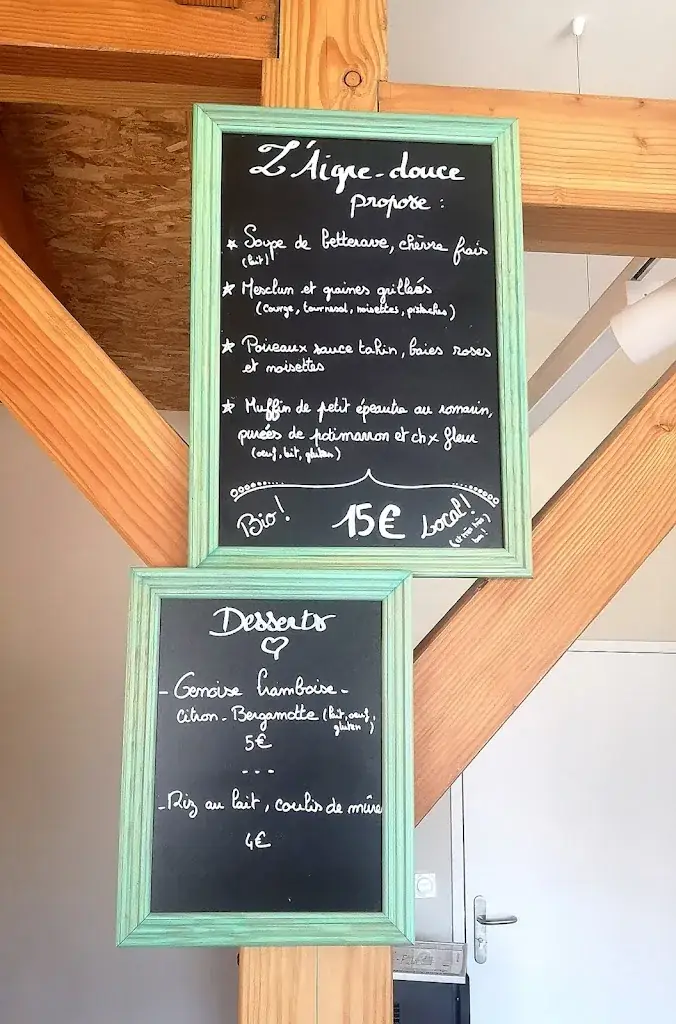 L'Aigre-douce
propose :
★ Soupe de betterave, chèvre frais
(lait)
★ Mesclun et graines grillées
(courge, tournesol, noisettes, pistaches)
★ Poireaux sauce tahin, baies roses
et noisettes
★ Muffin de petit épeautre au romarin,
purées de potimarron et ch x fleur
(oeuf, lait, gluten)
Bio! 15€ Local!
(et très très
bon!)
Desserts
- Genoise framboise -
Citron - Bergamotte (lait, oeuf,
gluten)
5€
- - -
- Riz au lait, coulis de mûre
4€